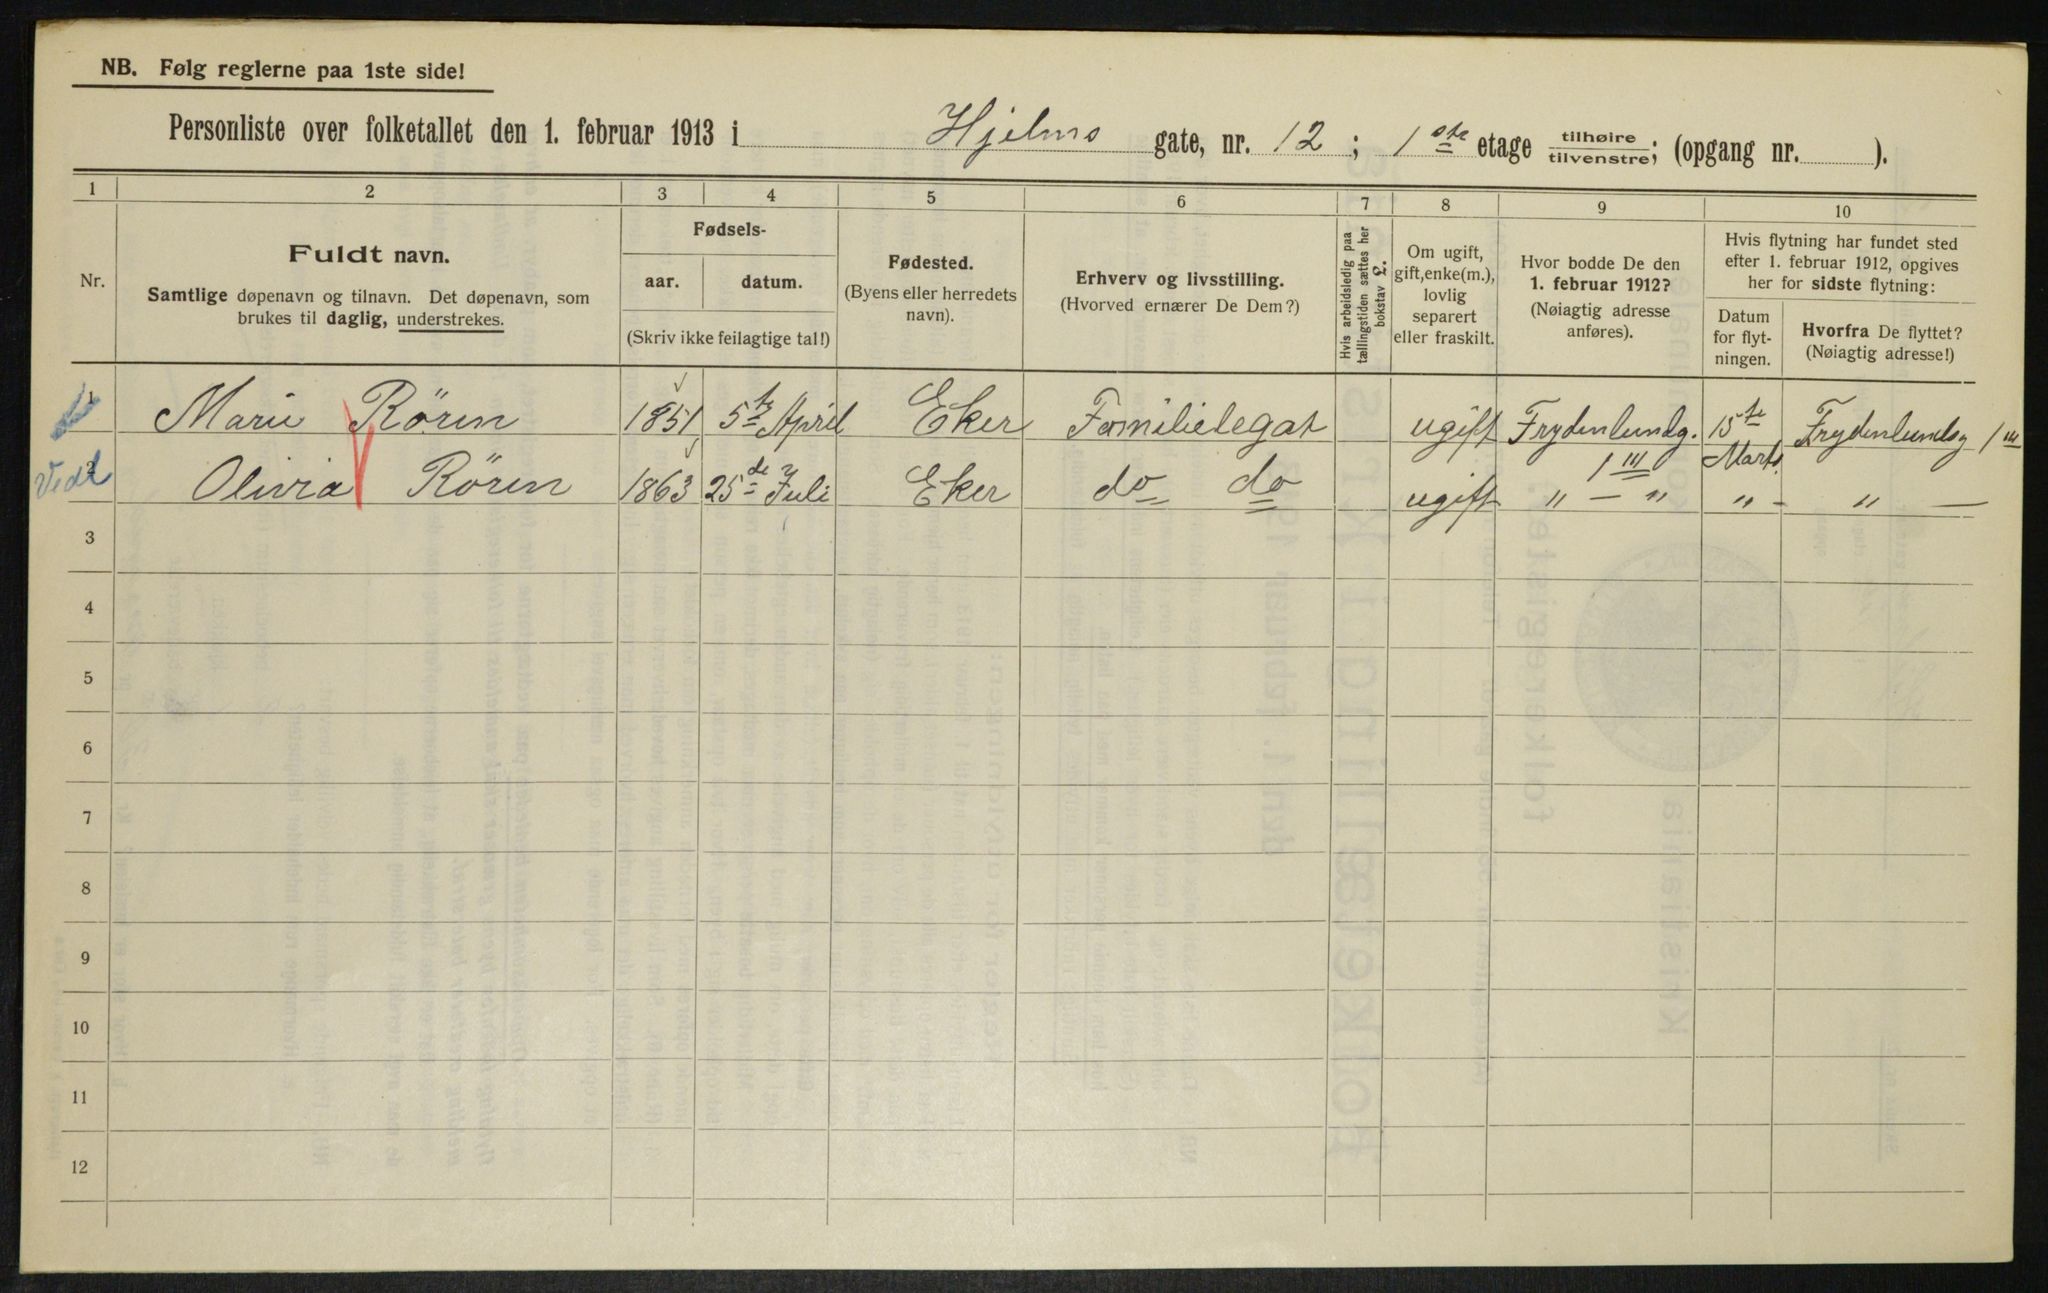 NB. Følg reglerne paa 1ste side!
Personliste over folketallet den 1. februar 1913 i Hjelms gate, nr. 12 ; 1ste etage tilhøire/tilvenstre; (opgang nr. ).
1 2 3 4 5 6 7 8 9 10
Nr.
Fuldt navn.
Samtlige døpenavn og tilnavn. Det døpenavn, som
brukes til daglig, understrekes.
Fødsels-
aar. datum.
(Skriv ikke feilagtige tal!)
Fødested.
(Byens eller herredets
navn).
Erhverv og livsstilling.
(Hvorved ernærer De Dem?)
Hvis arbeidsledig paa
tællingstiden sættes her
bokstav L.
Om ugift,
gift, enke(m.),
lovlig
separert
eller fraskilt.
Hvor bodde De den
1. februar 1912?
(Nøiagtig adresse
anføres).
Hvis flytning har fundet sted
efter 1. februar 1912, opgives
her for sidste flytning:
Datum
for flyt-
ningen.
Hvorfra De flyttet?
(Nøiagtig adresse!)
1 Marie Røren 1851 5te April Eker Familielegat ugift Frydenlundg. 1 III 15te Marts Frydenlundsg 1 III
2 Olivia Røren 1863 25de Juli Eker do do ugift " — " " - " —
3
4
5
6
7
8
9
10
11
12